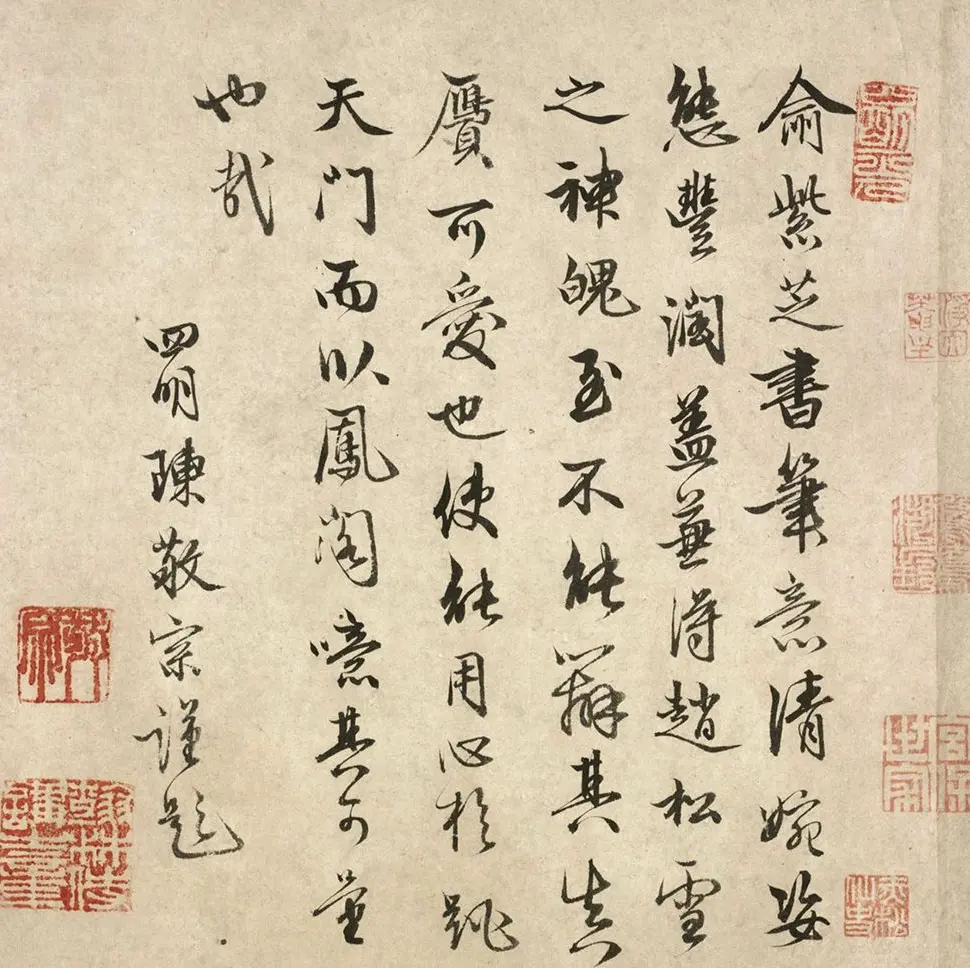 俞紫芝書筆意清婉姿
態豐潤蓋兼得趙松雪
之神魄至不能辯其真
贋可愛也使能用心於跳
天門而臥鳳閣噫其可量
也哉
四明陳敬宗謹題